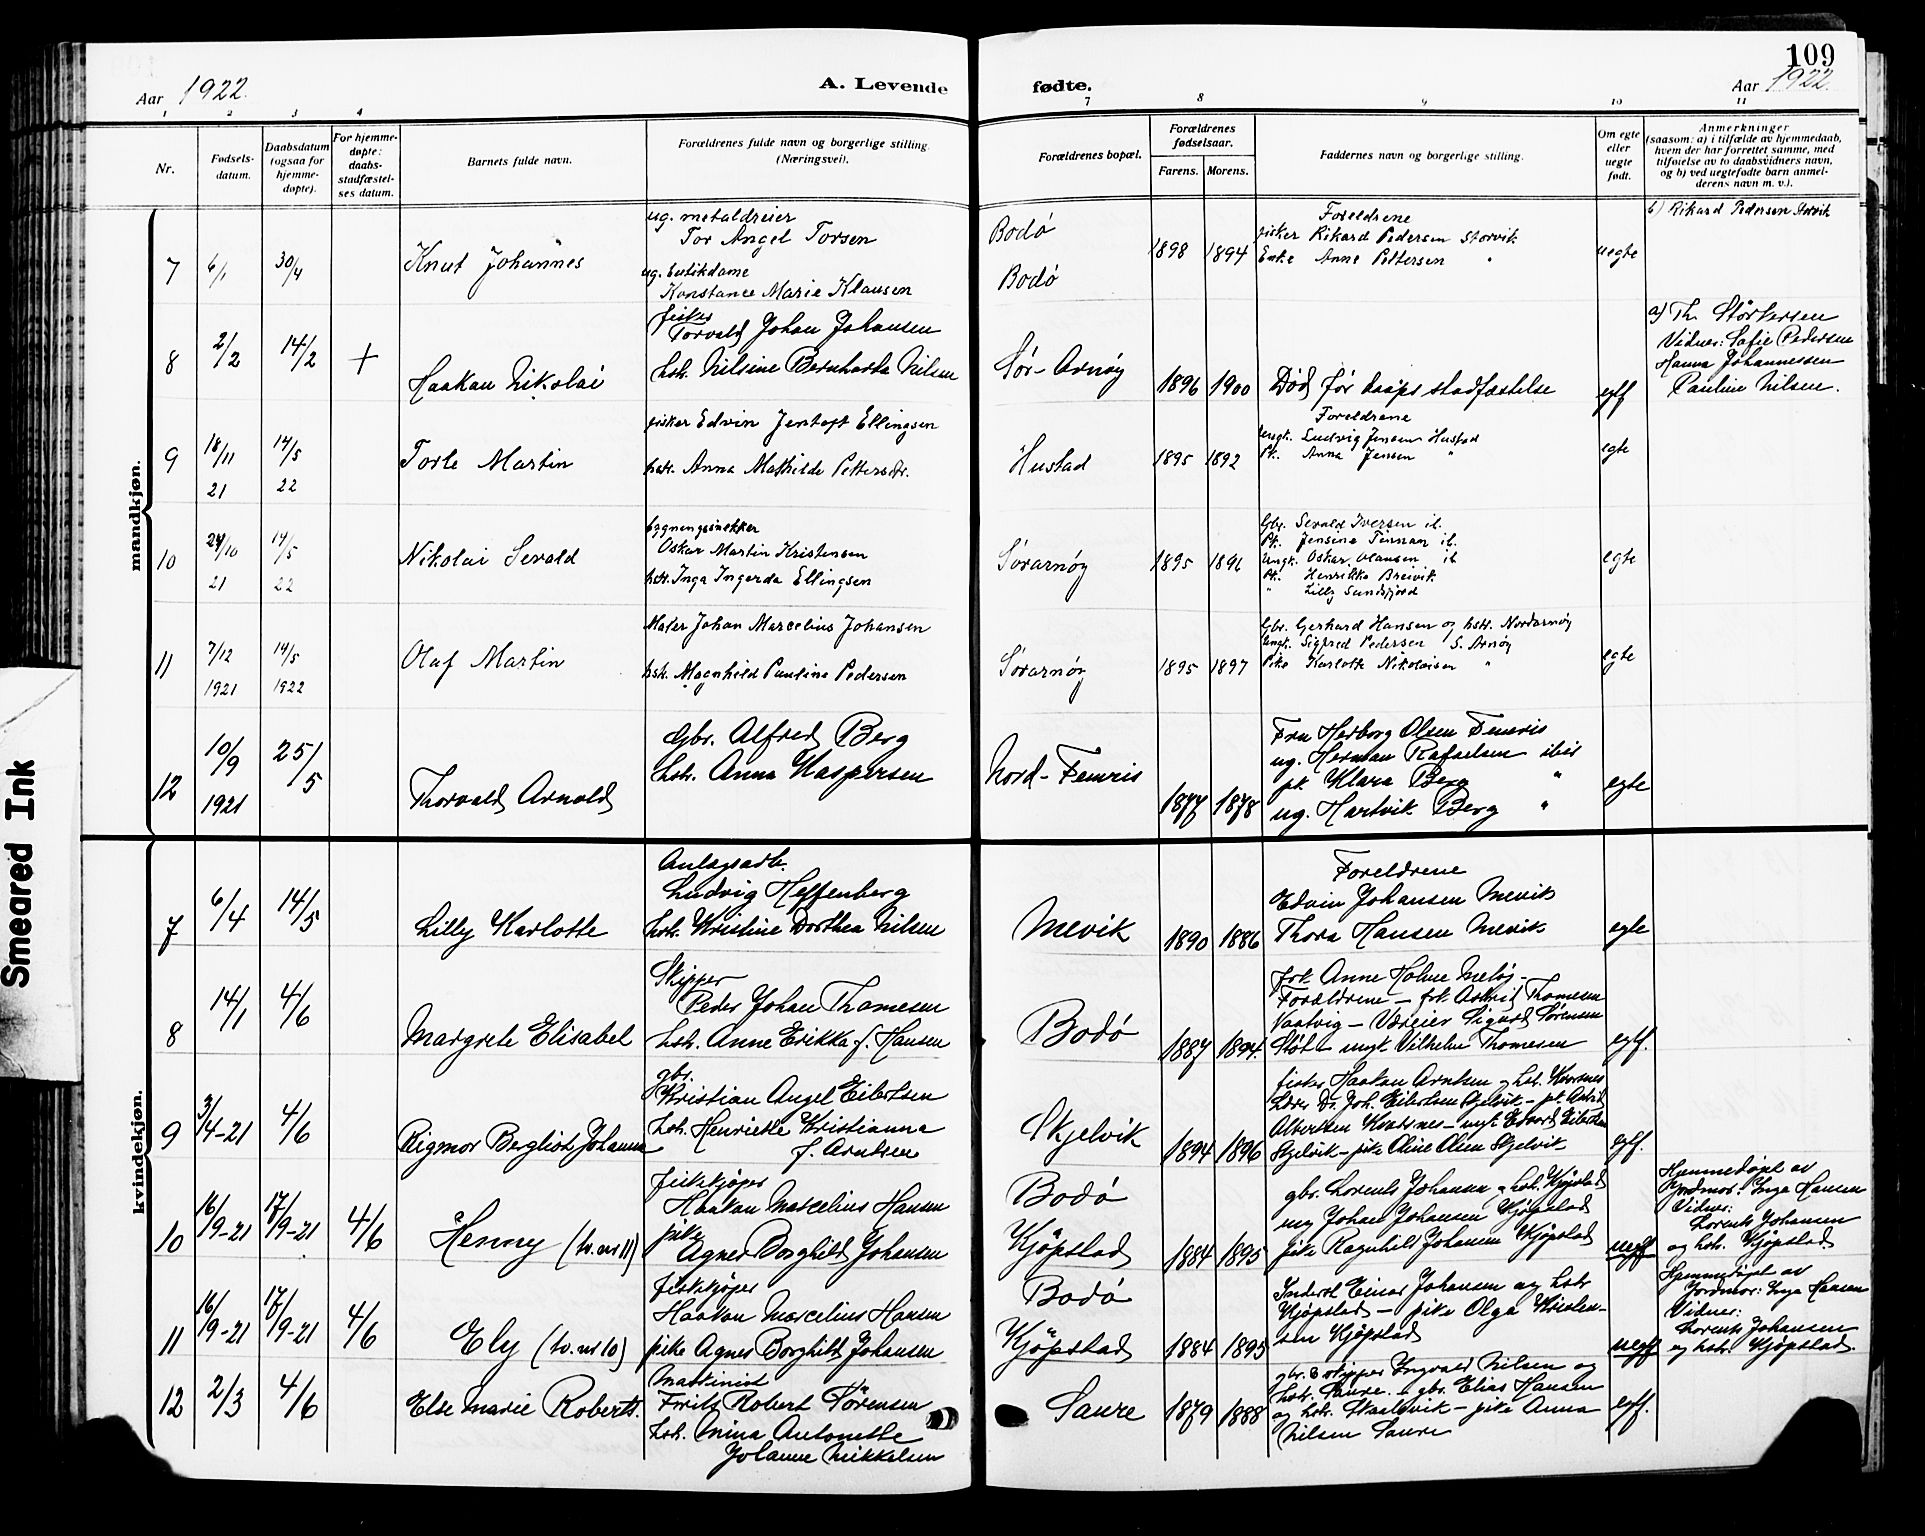 109
Aar 1922.
A. Levende
fødte.
Aar 1922.
1 2 3 4 7 8 9 10 11
Nr.
Fødsels-
datum.
Daabsdatum
(ogsaa for
hjemme-
døpte).
For hjemme-
døpte:
daabs-
stadfæstel-
ses datum.
Barnets fulde navn.
Forældrenes fulde navn og borgerlige stilling.
(Næringsvei).
Forældrenes bopæl.
Forældrenes
fødselsaar.
Farens. Morens.
Faddernes navn og borgerlige stilling.
Om egte
eller
uegte
født.
Anmerkninger
(saasom: a) i tilfælde av hjemmedaab,
hvem der har forrettet samme, med
tilføielse av to daabsvidners navn,
og b) ved uegtefødte barn anmel-
derens navn m. v.).
mandkjøn.
7 6/1 30/4 Knut Johannes
ug. metaldreier
Tor Angel Torsen
ug. butikdame
Konstance Marie Klausen
Bodø
Bodø
1898 1894
Foreldrene
fisker Rikard Pedersen Storvik
Enke Anna Pettersen "
uegte
b) Rikard Pedersen Storvik
8 2/2 14/2 + Haakan Nikolai
fisker
Torvald Johan Johansen
hst. Nilsine Bernharda Nilsen
Sør-Arnøy
1896 1900
Død før daaps stadfæstelse
egf
a) Th. Størkersen
Vidner: Sofie Pedersen
Hanna Johannessen
Pauline Nilsen.
9 18/11 21 14/5 22 Torle Martin
fisker Edvin Jentoft Ellingsen
hstr. Anna Mathilde Pettersdtr.
Hustad
1895 1892
Foreldrene
Ungk. Ludvig Jensen Hustad
Pk. Anna Jensen "
egte
10 24/10 21 14/5 22 Nikolai Sevald
bygningssnekker
Oskar Martin Kristensen
hstr. Inga Ingarda Ellingsen
Sørarnøy
1895 1896
Gbr. Sevald Iversen ib.
Pk. Jensine Finnan ib.
Ungk. Oskar Olausen ib
Pk. Henrikke Breivik
" Lilly Sundsfjord
egte
11 7/12 1921 14/5 1922 Olaf Martin
Maler Johan Marcelius Johansen
hst. Magnhild Pauline Pedersen
Sørarnøy
1895 1897
Gbr. Gerhard Hansen og hstr. Nordarnøy
Ungk. Sigfred Pedersen S. Arnøy
Pike Karlotte Nikolaisen "
egte
12 10/9 1921 25/5 Thorvald Arnold
Gbr. Alfred Berg
hst. Anna Kaspersen
Nord-Femris
1877 1878
Fru Herborg Olsen Femris
ug. Herman Rafaelsen ibid
pk Klara Berg "
ug. Hartvik Berg "
egte
kvindekjøn.
7 6/4 14/5 Lilly Karlotte
Anlægsarb.
Ludvig Heffenberg
hst. Kristine Dorthea Nilsen
Mevik
1890 1886
Foreldrene
Edvin Johansen Mevik
Thora Hansen Mevik
egte
8 14/1 4/6 Margrete Elisabet
Skipper
Peder Johan Thomesen
hst. Anne Erikka f. Hansen
Bodø
1887 1894
frk. Anne Holme Meløy -
Forældrene - frk. Astrid Thomesen
Vaatvig - Væreier Sigurd Sørensen
Støt - ungk Vilhelm Thomesen
egf.
9 3/4-21 4/6 Rigmor Bergliot Johanna
gbr.
Kristian Angel Eilertsen
hst. Henriette Kristianna
f. Arntsen
Skjelvik
1894 1896
fisker Haakan Arntsen og hst. Kvarsnes
Joh. Eilertsen Skjelvik - pk. Astrid
Albertsen Kvarsnes - ungk. Edvard Eilertsen
Skjelvik - pike Oline Olsen Skjelvik
egf.
10 16/9-21 17/9-21 4/6 Henny (tv. nr 11)
fiskkjøper
Haakan Marcelius Hansen
pike
Agnes Borghild Johansen
Bodø
Kjøpstad
1884 1895
gbr. Lorents Johansen og hst. Kjøpstad
ung Johan Johansen Kjøpstad
pike Ragnhild Johansen Kjøpstad
uegf
Hjemmedøpt av
Jordmor: Inga Hansen
Vidner:
Lorents Johansen
og hst. Kjøpstad
11 16/9-21 17/9-21 4/6 Ely (tv. nr 10)
fiskkjøper
Haakan Marcelius Hansen
pike Agnes Borghild Johansen
Bodø
Kjöpstad
1884 1895
Inderst Einar Johansen og hst
Kjøpstad - pike Olga Kristen-
sen Kjøpstad
uegf
Hjemmedøpt av
Jordmor: Inga Hansen
Vidner:
Lorents Johansen
og hst. Kjøpstad.
12 2/3 4/6 Else Marie Roberts.
Maskinist
Frits Robert Sørensen
hst. Nina Antonette
Johanne Mikkelsen
Saure
1879 1888
gbr. & skipper Ingvald Nilsen og
hst. Saure. - gbr. Elias Hansen
og hst. Skaalsvik - pike Anna
Nilsen Saure
egf.
Smeared Ink